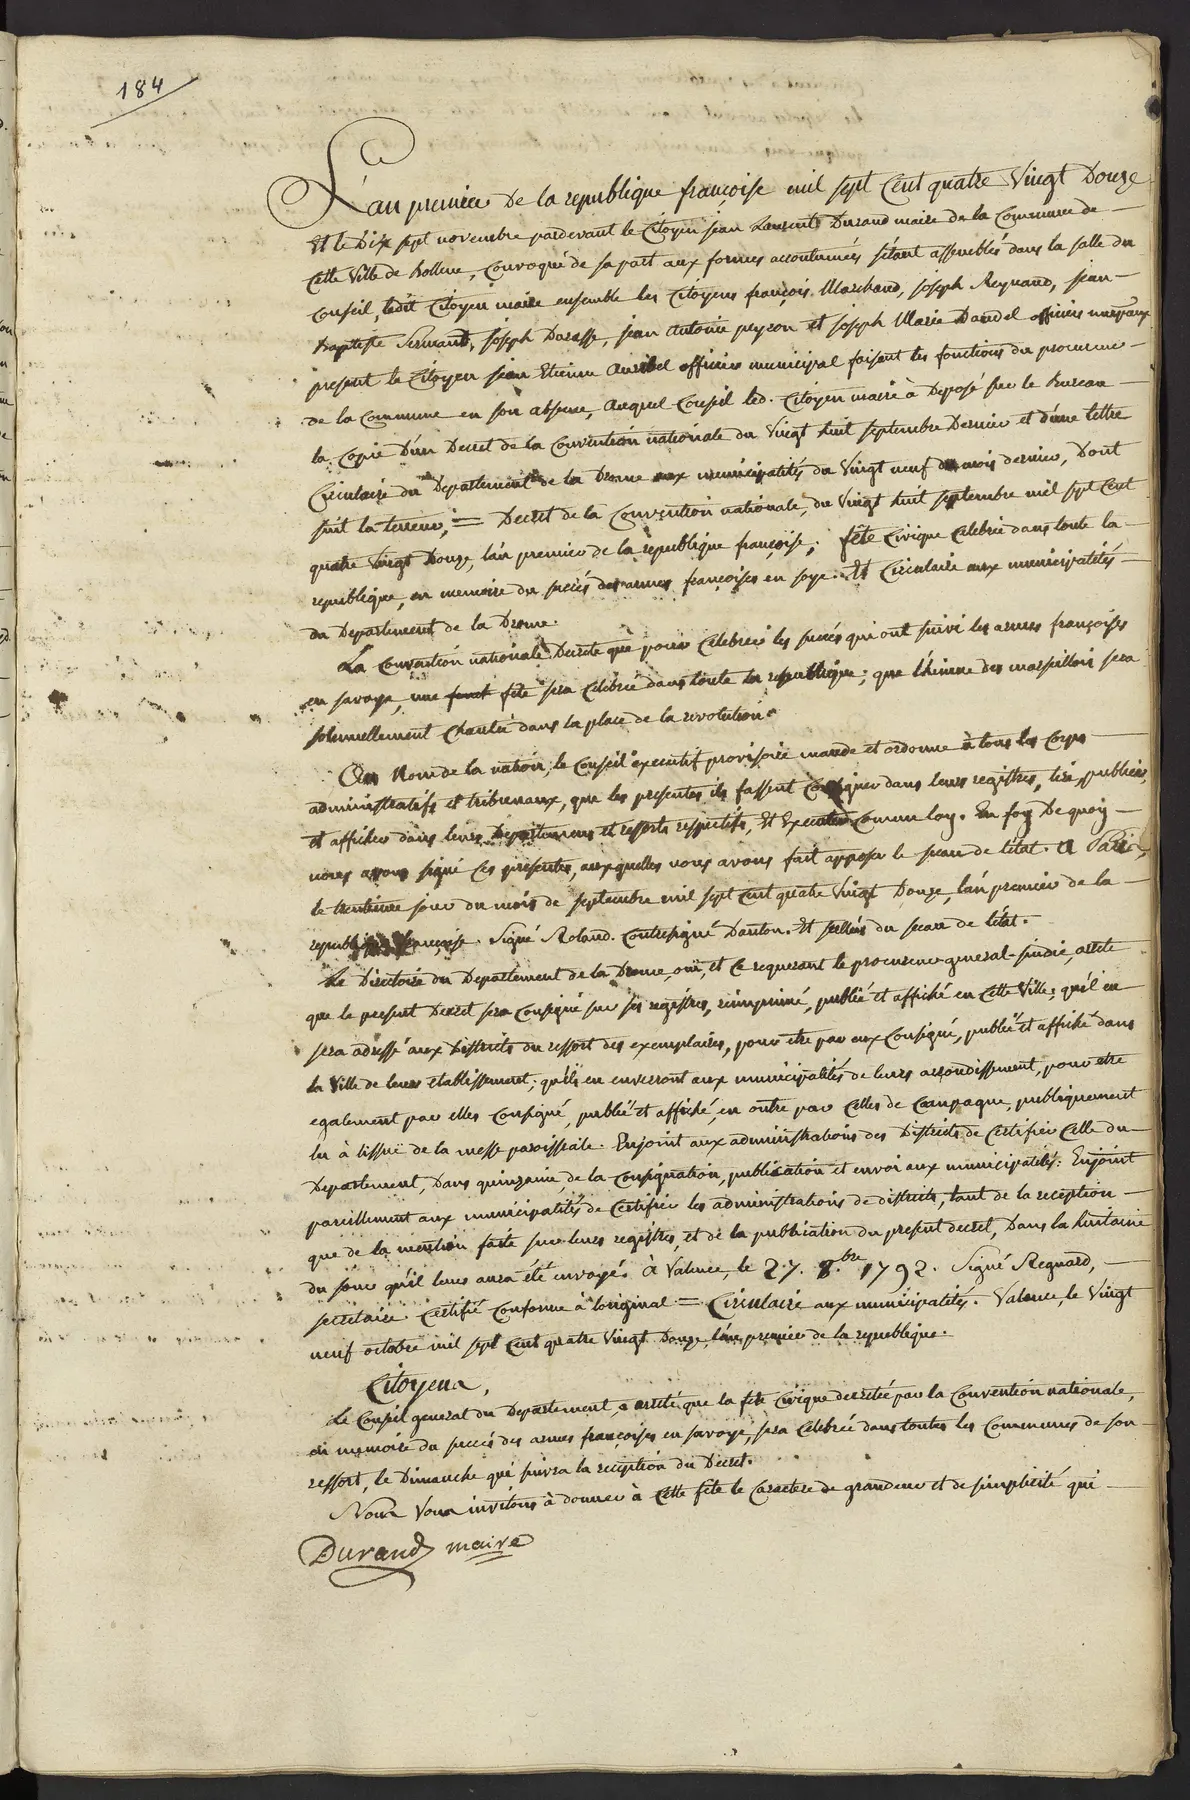 184
L'an premier De la republique françoise mil sept Cent quatre Vingt Douze
Et le Dix sept novembre pardevant le Citoyen jean Laurent Durand maire de la Commune de
Cette Ville de Bollene, Convoqué de sa part aux formes accoutumées s'étant assemblés dans la salle du
Conseil, ledit Citoyen maire ensemble les Citoyens françois Marchand, joseph Reynaud, jean
Baptiste joseph Darasse, jean antoine peyron et joseph Marie Dandel officiers munipaux
present le Citoyen jean Etienne officier municipal faisant les fonctions du procureur
de la Commune en son absence, Auquel Conseil led. Citoyen maire à Deposé sur le Bureau
la Copie D'un Decret de la Convention nationale du Vingt huit septembre Dernier et d'une lettre
Circulaire du Departement de la Drome aux municipalités du Vingt neuf du mois dernier, Dont
suit la teneur; = Decret de la Convention nationale, du Vingt huit septembre mil sept Cent
quatre Vingt Douze, l'an premier de la republique françoise; fête Civique Celebrée dans toute la
republique, en memoire du succés des armes françoises en Et Circulaire aux municipalités
du Departement de la Drome.
La Convention nationale Decrete que pour Celebrer les succés qui ont suivi les armes françoises
en savoye, une fête sera Celebrée dans toute la republique; que l'himne des marseillois sera
solemnellement Chantée dans la place de la revolution.
Au Nom de la nation, le Conseil executif provisoire mande et ordonne à tous les Corps
administratifs et tribunaux, que les presentes ils fassent Consigner dans leurs registres, lire, publier,
et afficher dans leurs Departemens et ressorts respectifs, Et Executer Comme loy. En foy De quoy
nous avons signé Ces presentes, auxquelles nous avons fait apposer le sceau de l'etat. A Paris,
le trentieme jour du mois de septembre mil sept Cent quatre Vingt Douze, l'an premier de la
republique françoise. Signé Roland. Contresigné Danton. Et scellées du sceau de l'état.
Le Directoire du Departement de la Drome, ouï, et Ce requerant le procureur general-sindic, arrete
que le present Decret sera Consigné sur ses registres, reimprimé, publié et affiché en Cette Ville; qu'il en
sera adressé aux Districts du ressort des exemplaires, pour etre par eux Consigné, publié et affiché dans
la Ville de leurs etablissement; qu'ils en enverront aux municipalités de leurs arrondissement, pour etre
egalement par elles Consigné, publié et affiché, en outre par Celles de Campagne, publiquement
lu à l'issuë de la messe paroissiale. Enjoint aux administrations des Districts de Certifier Celle du
Departement, Dans quinzaine, de la Consignation, publication et envoi aux municipalités: Enjoint
pareillement aux municipalités de Certifier les administrations de districts, tant de la reception
que de la mention faite sur leurs registres, et de la publication du present decret, Dans la huitaine
du jour qu'il leurs aura été envoyé. A Valence, le 27. 8.bre 1792. Signé Regnard,
secretaire. Certifié Conforme à l'original = Circulaire aux municipalités. Valence, le Vingt
neuf octobre mil sept Cent quatre Vingt Douze, l'an premier de la republique.
Citoyens,
Le Conseil general du Departement, a arreté que la fete Civique decretée par la Convention nationale,
en memoire du succés des armes françoises en savoye, sera Celebrée dans toutes les Communes de son
ressort, le Dimanche qui suivra la reception du Decret.
Nous Vous invitons à donner à Cette fête le Caractere de grandeur et de simplicité qui
Durand maire